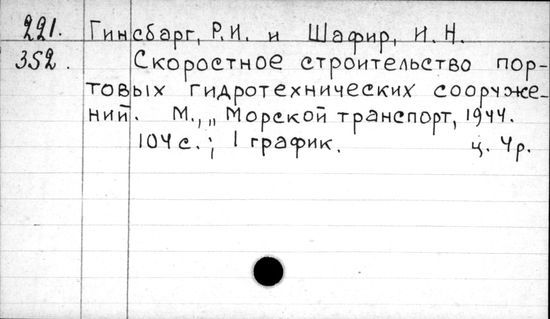 221. Гинсбарг, Р.И. и Шафир, И.Н.
352. Скоростное строительство пор-
товых гидротехнических сооруже-
ний. М., „Морской транспорт, 1944.
104 с.; 1 график. ц. 4р.